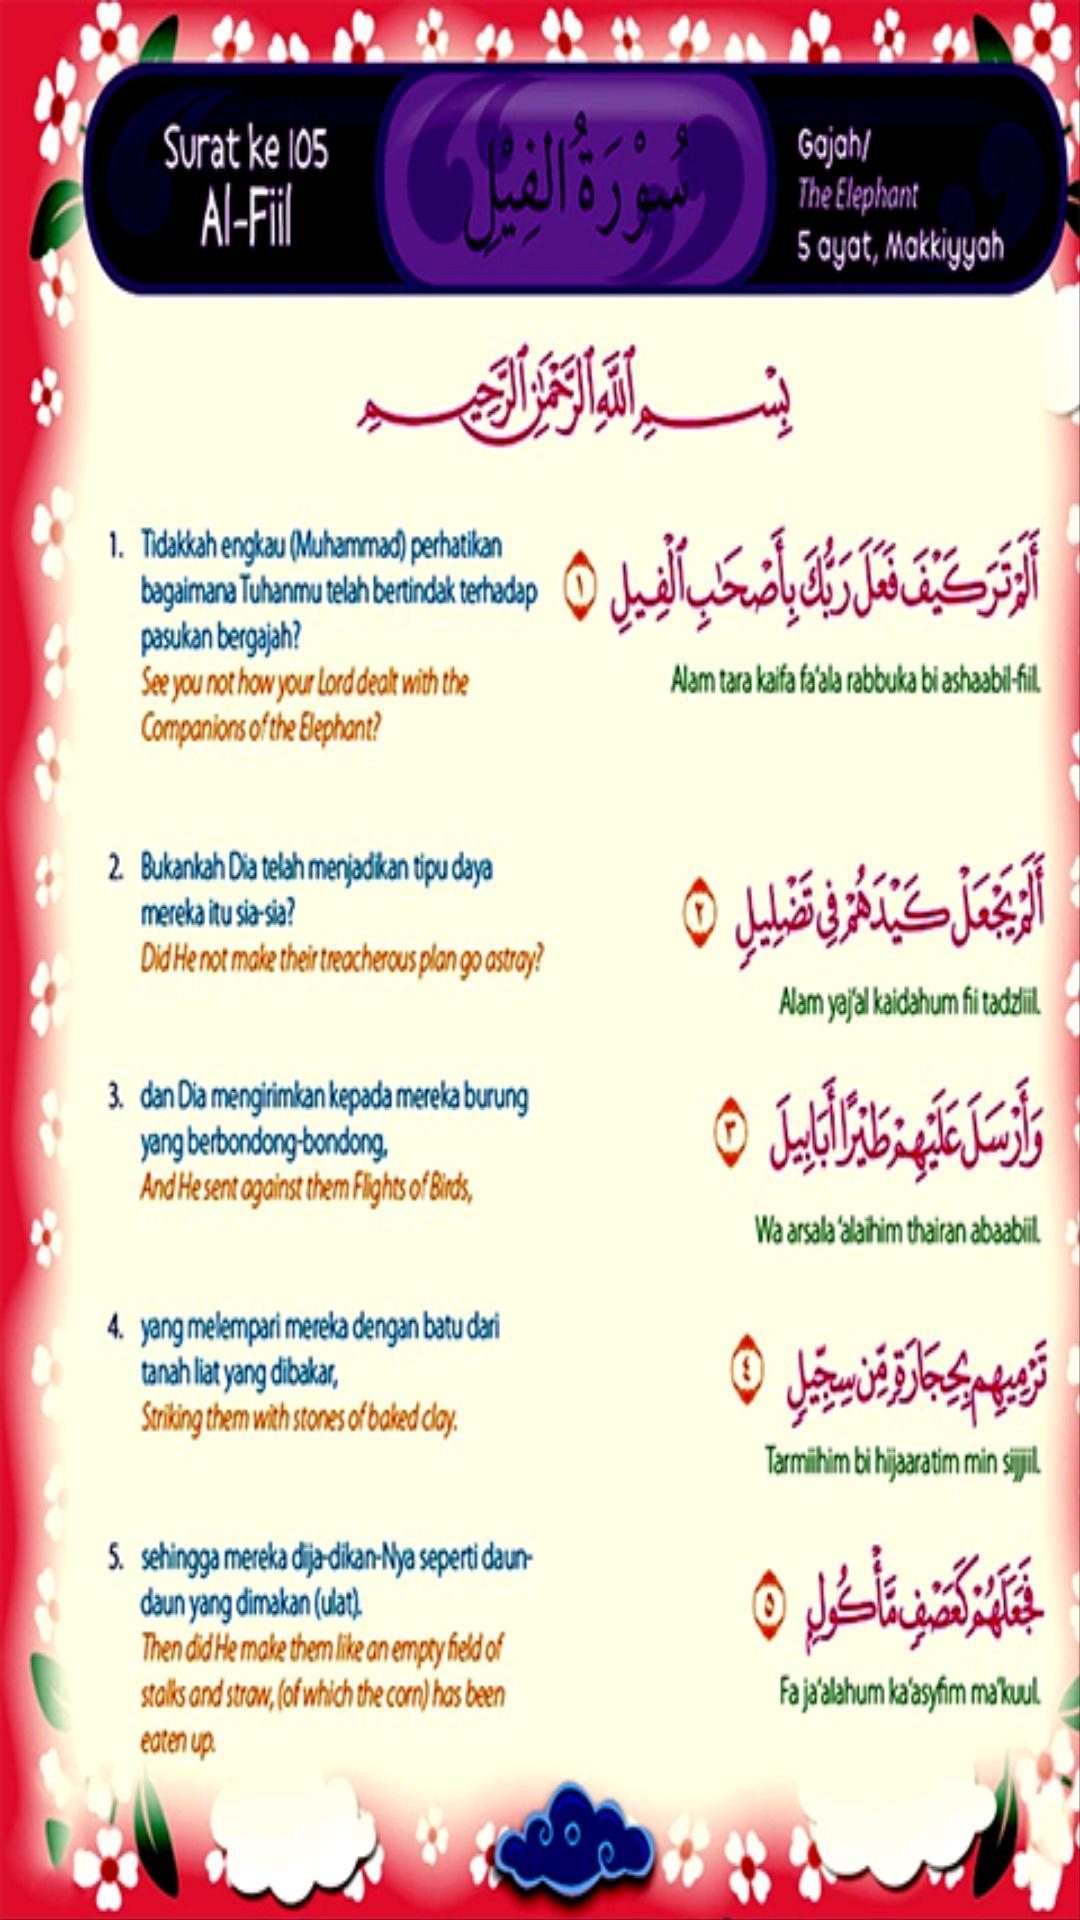 Surat ke 105
Al-Fiil
سُوْرَةُ الفِيْلِ
Gajah/
The Elephant
5 ayat, Makkiyyah
بِسْمِ ٱللَّهِ ٱلرَّحْمَٰنِ ٱلرَّحِيمِ
1. Tidakkah engkau (Muhammad) perhatikan
bagaimana Tuhanmu telah bertindak terhadap
pasukan bergajah?
See you not how your Lord dealt with the
Companions of the Elephant?
أَلَمْ تَرَ كَيْفَ فَعَلَ رَبُّكَ بِأَصْحَٰبِ ٱلْفِيلِ ١
Alam tara kaifa fa'ala rabbuka bi ashaabil-fiil.
2. Bukankah Dia telah menjadikan tipu daya
mereka itu sia-sia?
Did He not make their treacherous plan go astray?
أَلَمْ يَجْعَلْ كَيْدَهُمْ فِى تَضْلِيلٍ ٢
Alam yaj'al kaidahum fii tadzliil.
3. dan Dia mengirimkan kepada mereka burung
yang berbondong-bondong,
And He sent against them Flights of Birds,
وَأَرْسَلَ عَلَيْهِمْ طَيْرًا أَبَابِيلَ ٣
Wa arsala 'alaihim thairan abaabiil.
4. yang melempari mereka dengan batu dari
tanah liat yang dibakar,
Striking them with stones of baked clay.
تَرْمِيهِم بِحِجَارَةٍ مِّن سِجِّيلٍ ٤
Tarmiihim bi hijaaratim min sijjiil.
5. sehingga mereka dija-dikan-Nya seperti daun-
daun yang dimakan (ulat).
Then did He make them like an empty field of
stalks and straw, (of which the corn) has been
eaten up.
فَجَعَلَهُمْ كَعَصْفٍ مَّأْكُولٍ ٥
Fa ja'alahum ka'asyfim ma'kuul.